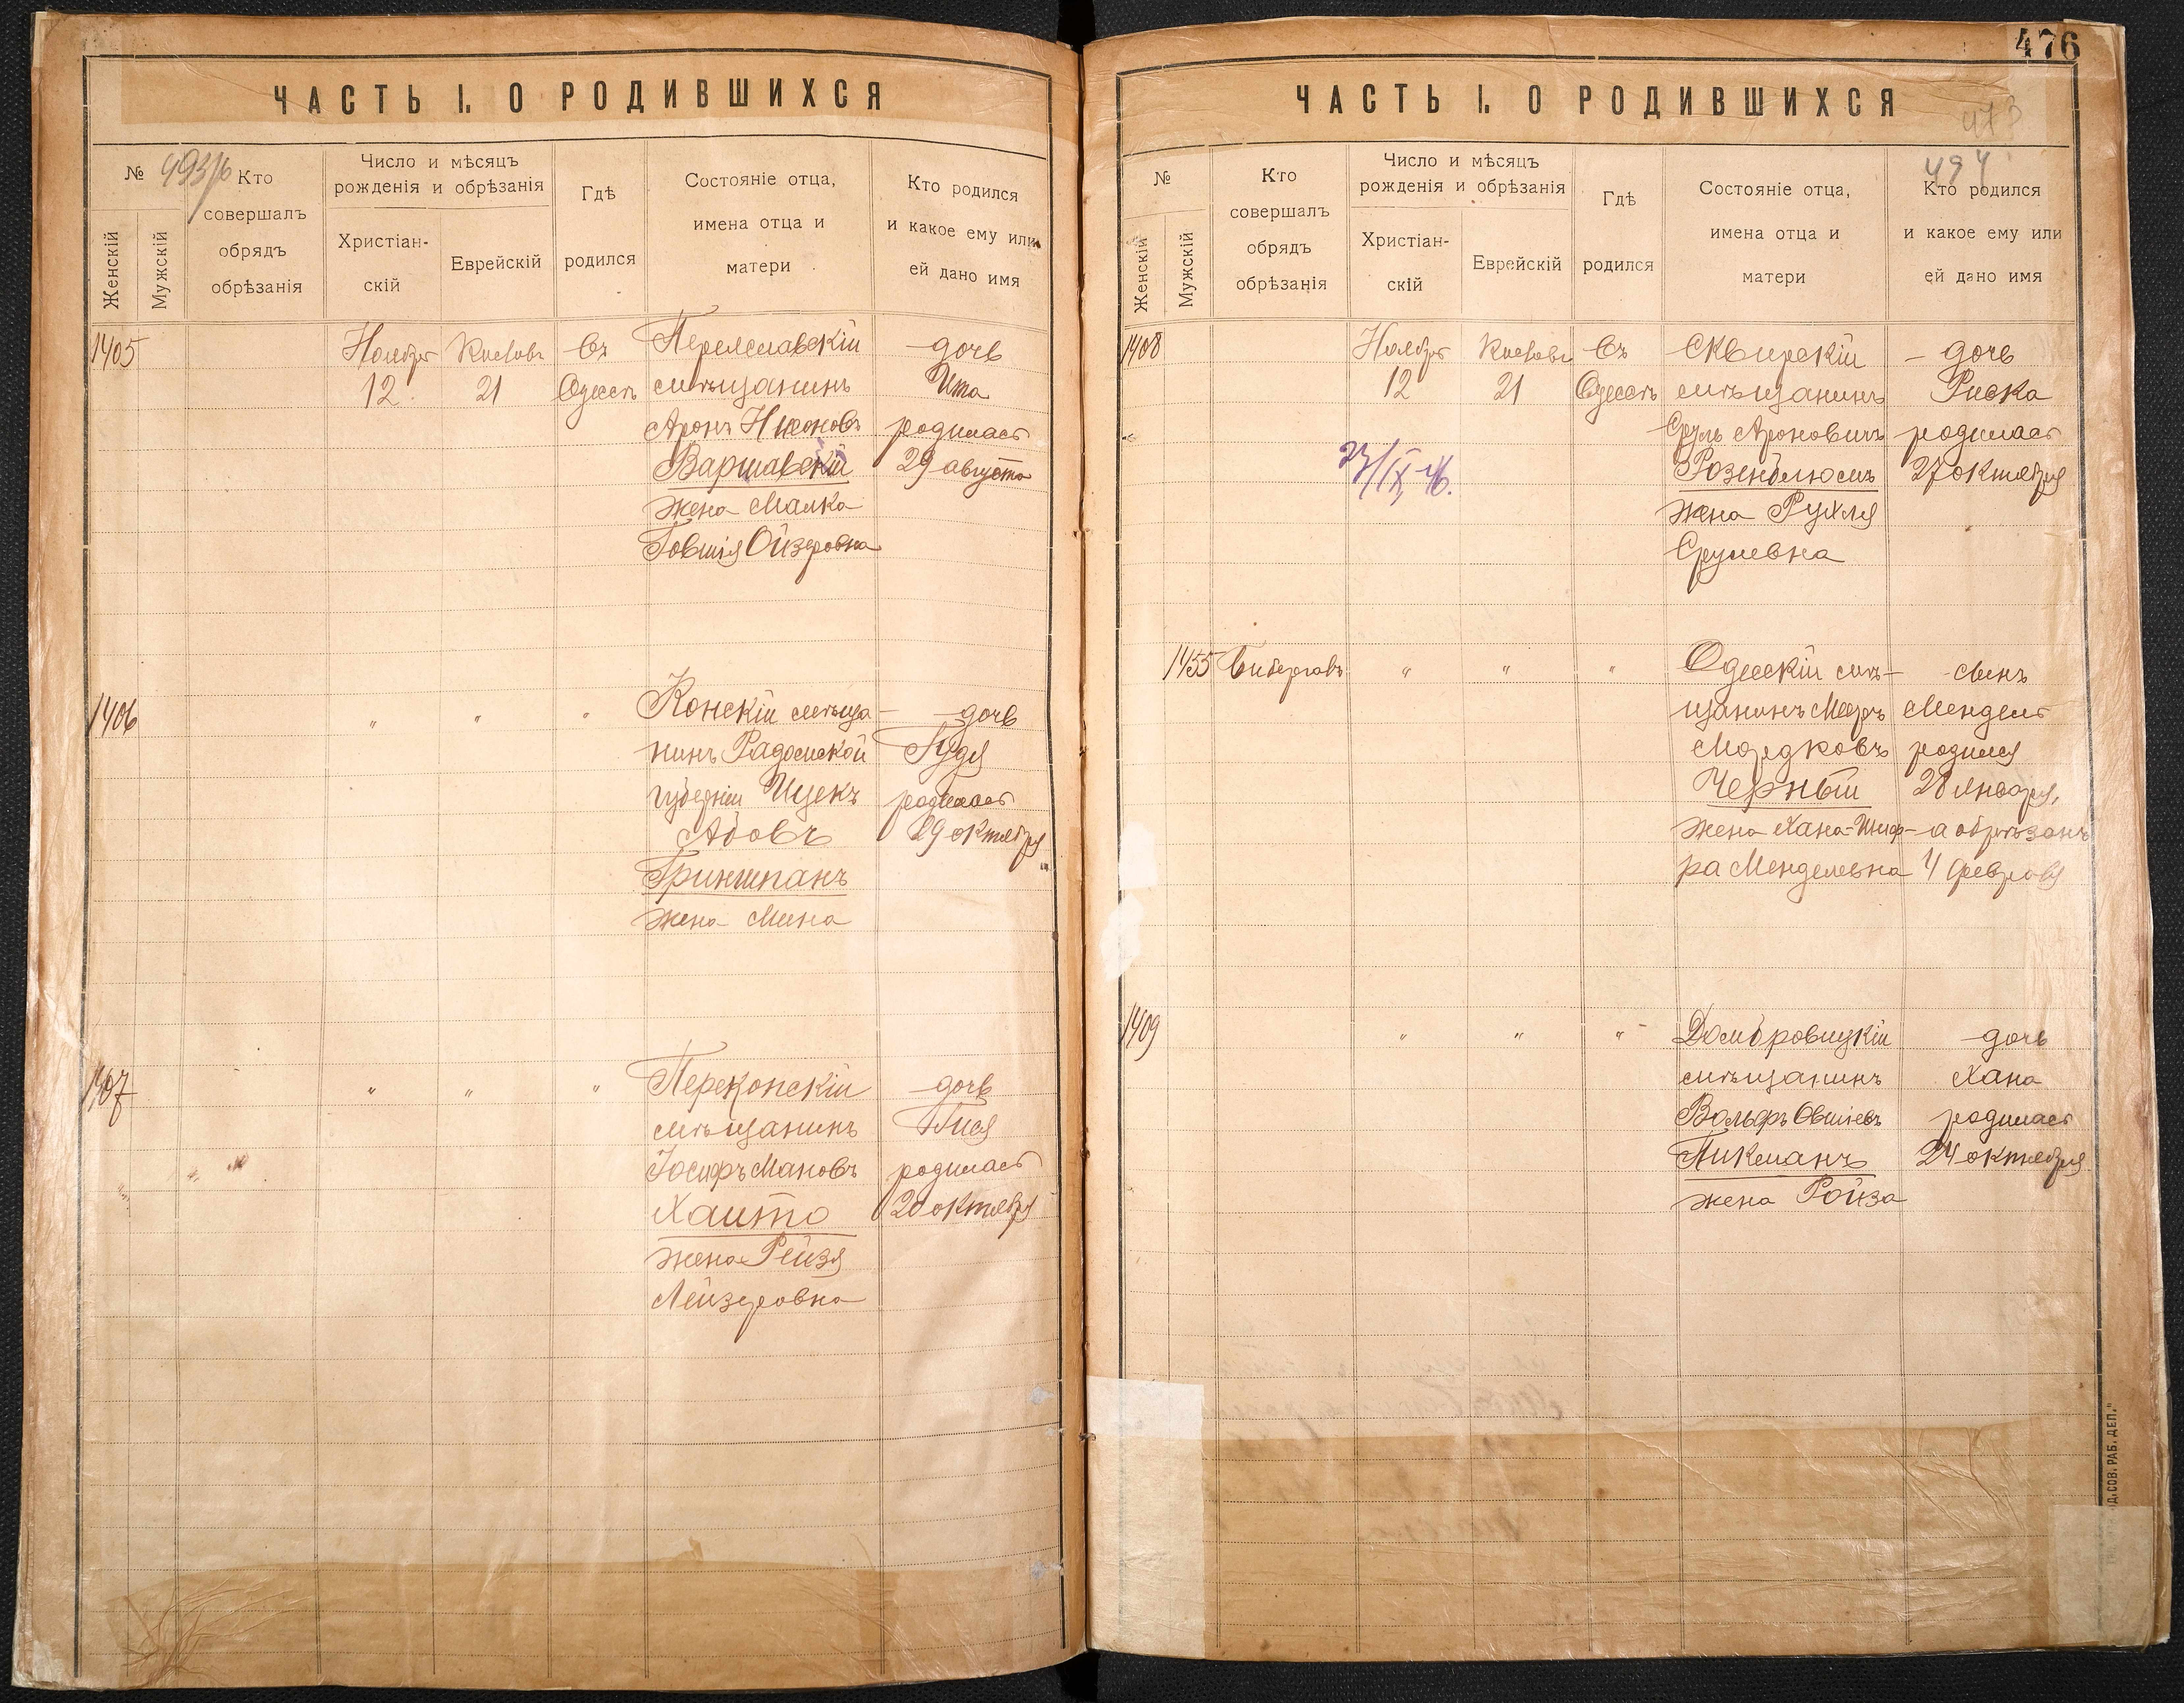 ЧАСТЬ I. О РОДИВШИХСЯ
№
Женскій
Мужскій
Кто
совершалъ
обрядъ
обрѣзанія
Число и мѣсяцъ
рожденія и обрѣзанія
Христіан-
скій
Еврейскій
Гдѣ
родился
Состояніе отца,
имена отца и
матери
Кто родился
и какое ему или
ей дано имя
1405
Ноября
12.
Кислевъ
21
Въ
Одессѣ
Переяславскій
мѣщанинъ
Аронъ
Варшавскій
жена Малка
Товшія Ойзеровна
дочь
Ита
родилась
29 августа
1406
"
"
"
Конскій мѣща-
нинъ Радомской
губерніи Ицекъ
Абовъ
Гриншпанъ
жена Мина
дочь
Гудя
родилась
29 октября
1407
"
"
"
Перекопскій
мѣщанинъ
Іосифъ Мановъ
Хаито
жена Рейзя
Лейзеровна
дочь
родилась
20 октября
476
ЧАСТЬ I. О РОДИВШИХСЯ
473
494
№
Женскій
Мужскій
Кто
совершалъ
обрядъ
обрѣзанія
Число и мѣсяцъ
рожденія и обрѣзанія
Христіан-
скій
Еврейскій
Гдѣ
родился
Состояніе отца,
имена отца и
матери
Кто родился
и какое ему или
ей дано имя
1408
Ноября
12
27/IX-46.
Кислевъ
21
Въ
Одессѣ
Сквирскій
мѣщанинъ
Сруль Ароновичъ
Розенблюмъ
жена Рухля
Срулевна
дочь
Риска
родилась
27 октября
1455
"
"
"
Одесскій мѣ-
щанинъ Мееръ
Мордковъ
Черный
жена Хана-Шиф-
ра Менделевна
сынъ
Мендель
родился
28 января,
а обрѣзанъ
4 февраля
1409
"
"
"
Домбровицкій
мѣщанинъ
Вольфъ Овшіевъ
Пикманъ
жена Ройза
дочь
Хана
родилась
24 октября
Д. СОВ. РАБ. ДЕП."